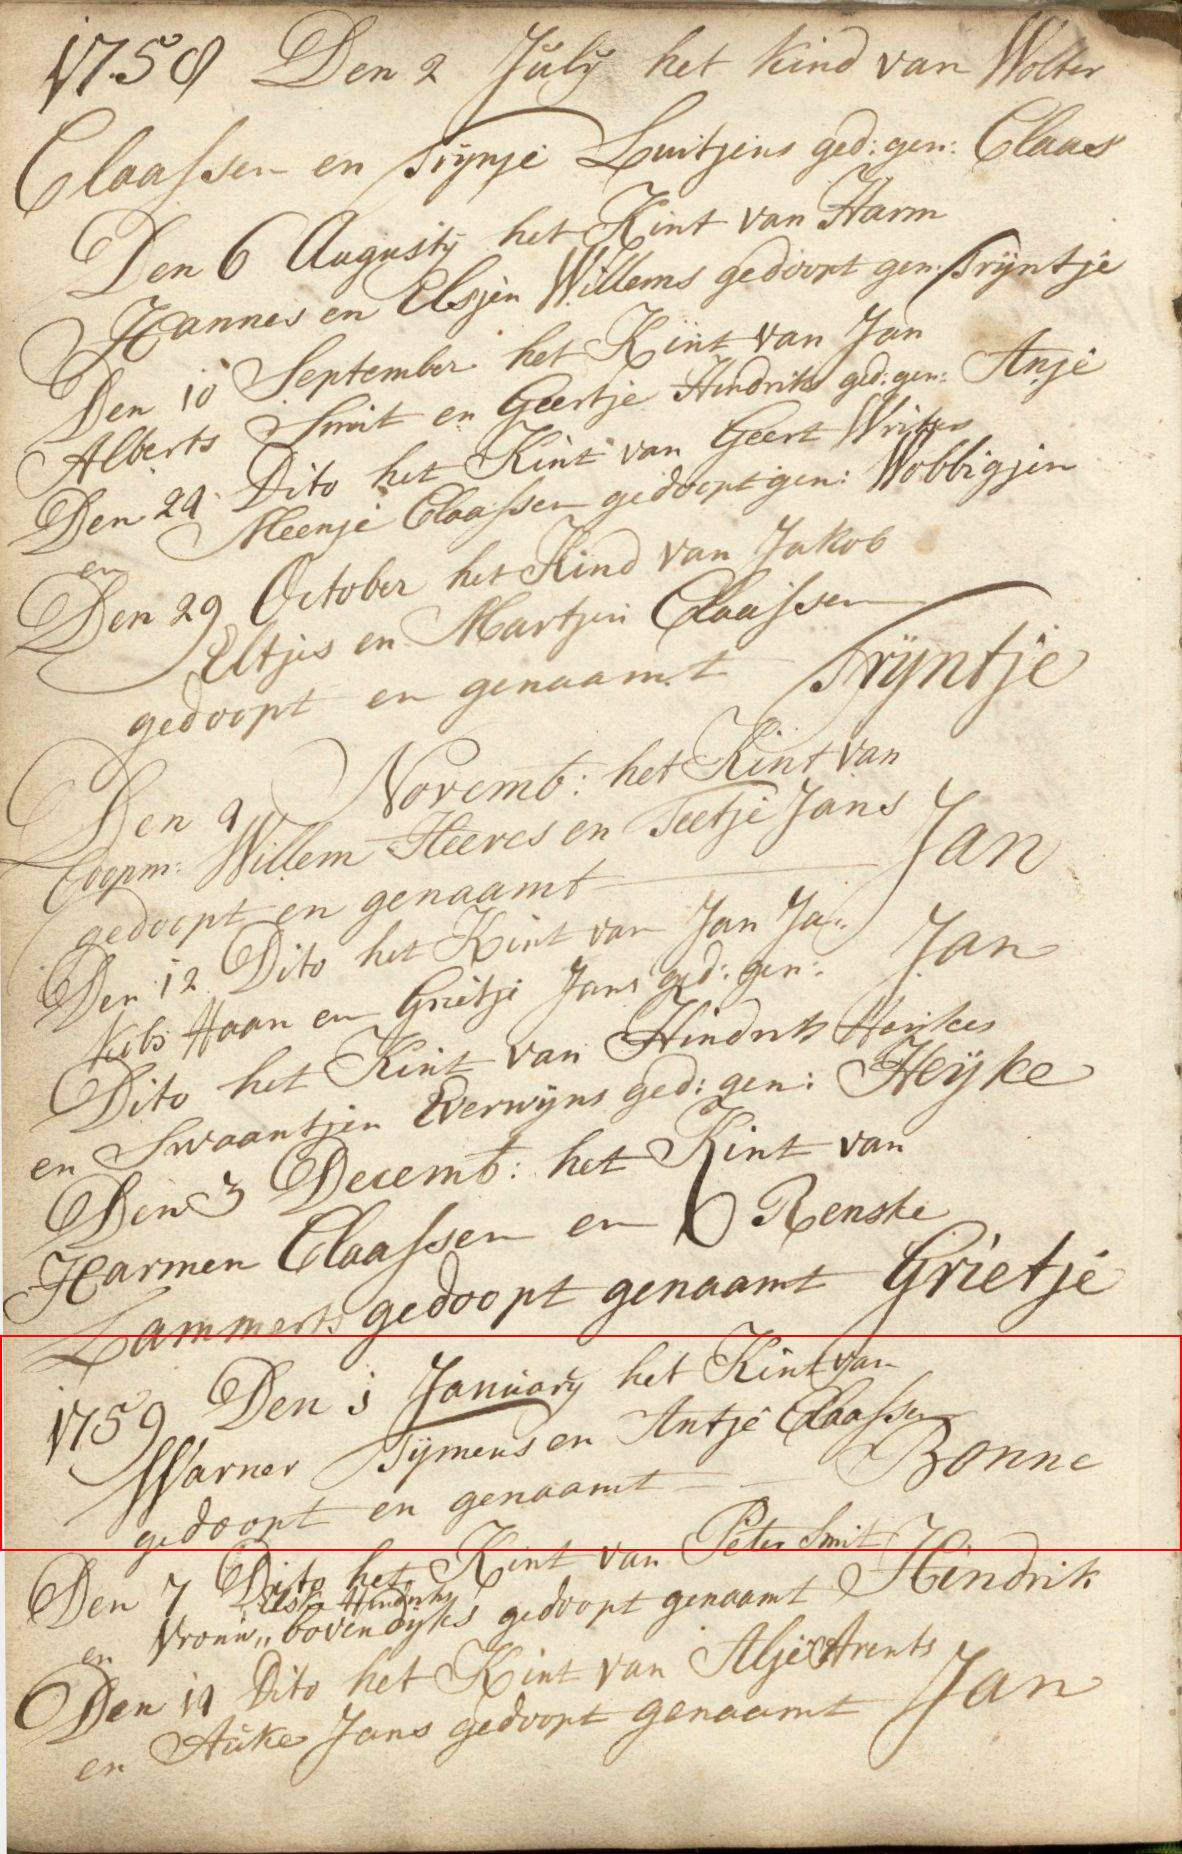 1758 Den 2 July het kind van Wolter
Claassen en Trijnje Luitjens ged: gen: Claas
Den 6 Augustij het Kint van Harm
Hannes en Elsjen Willems gedoopt gen: Trijntje
Den 10 September het Kint van Jan
Alberts Smit en Geertje Hindriks ged: gen: Anje
Den 24 Dito het Kint van Geert
en Meenje Claassen gedoopt gen: Wobbigjen
Den 29 October het Kind van Jakob
Eltjes en Martjen Claassen
gedoopt en genaamt Trijntje
Den 9 Novemb: het Kint van
Coopm: Willem Heeres en Teetje Jans
gedoopt en genaamt Jan
Den 12 Dito het Kint van Jan Ja„
kobs Haan en Grietje Jans ged: gen: Jan
Dito het Kint van Hindrik Heijkes
en Swaantjen Everwijns ged: gen: Heijke
Den 3 Decemb: het Kint van
Harmen Claassen en Renske
Lammerts gedoopt genaamt Grietje
1759 Den 1 January het Kint van
Warner Tijmens en Antje Claassen
gedoopt en genaamt Bonne
Den 7 Dito het Kint van Peter Smit
Hindriks
en Vrouw„ bovendyks gedoopt genaamt Hindrik
Den 14 Dito het Kint van Alje Arents
en Auke Jans gedoopt genaamt Jan